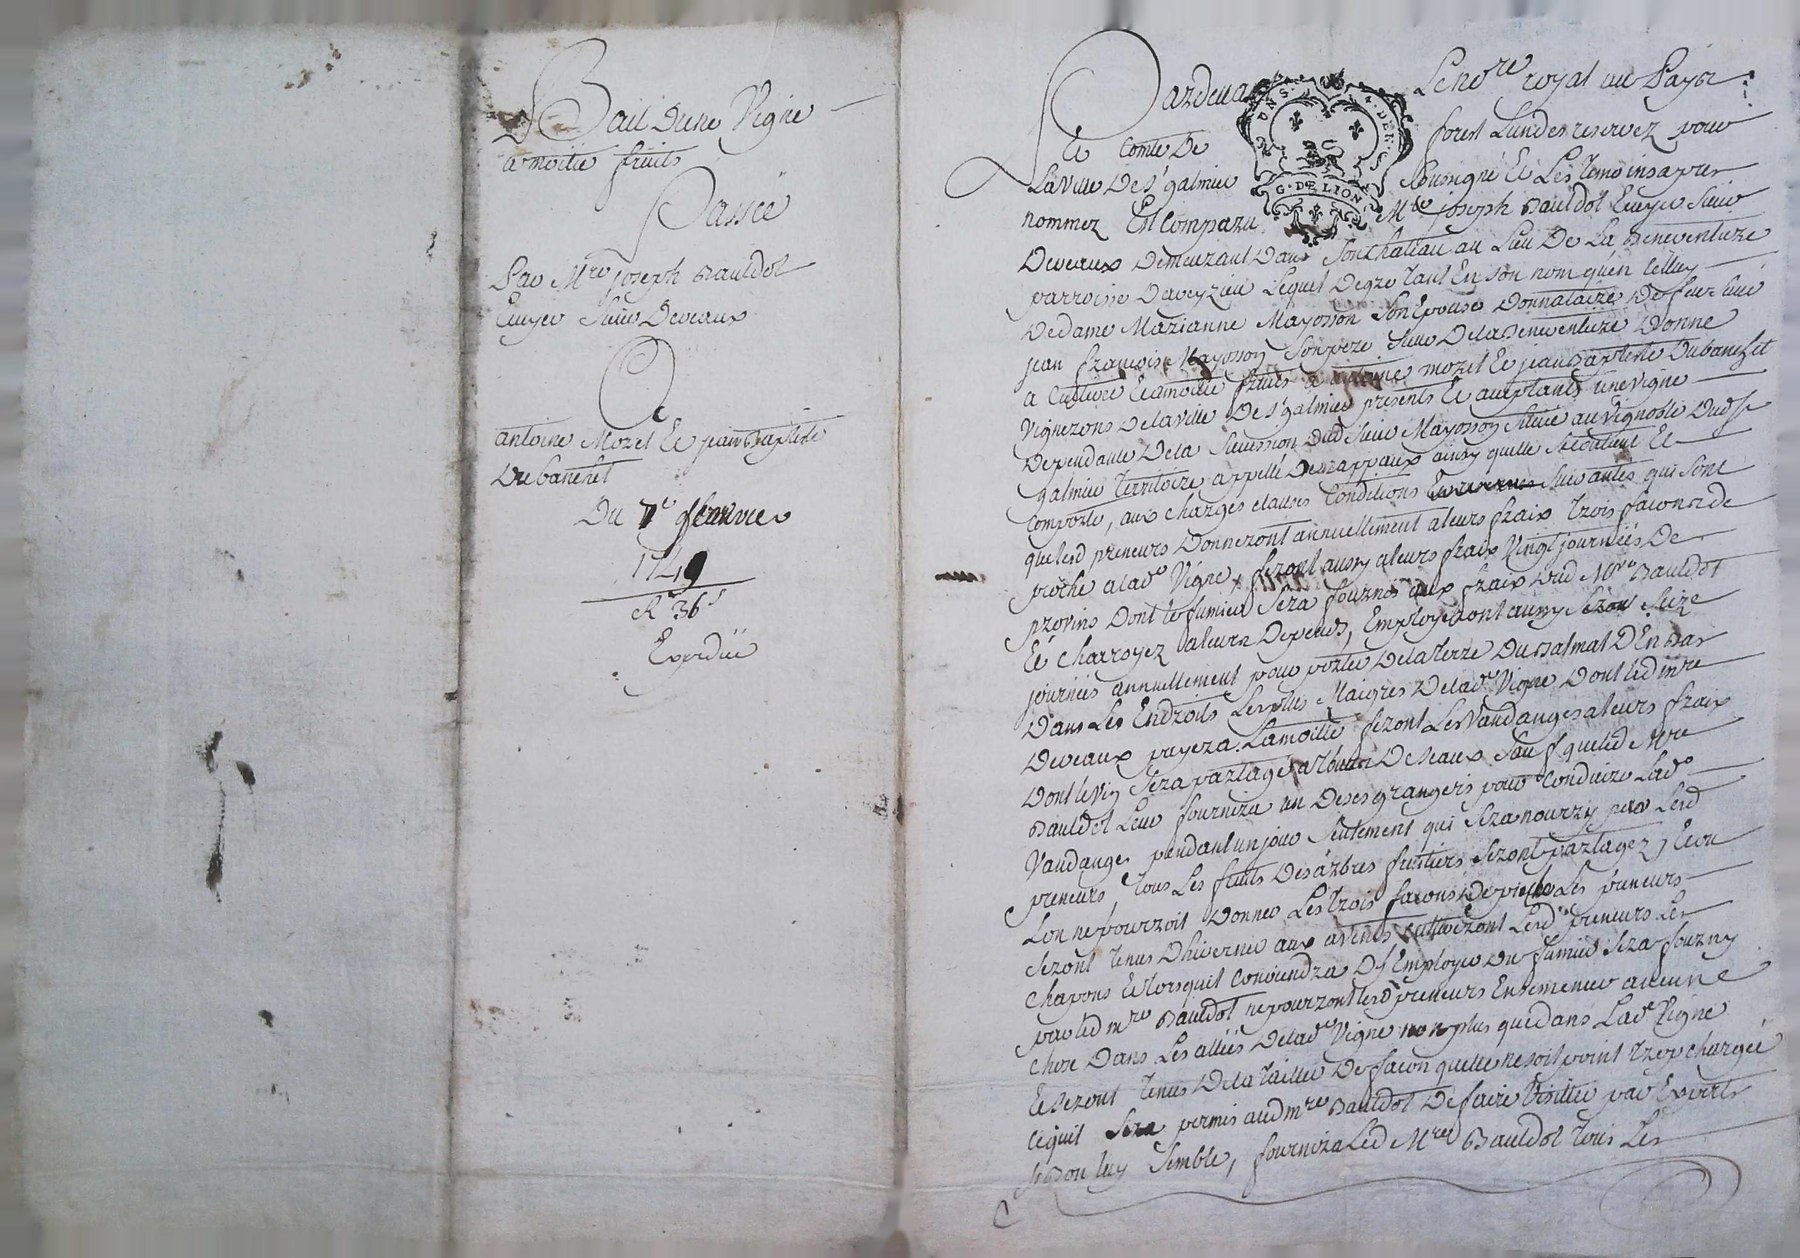 Bail Dune Vigne
a moitié fruits
Passée
Par Mre joseph Bauldot
Ecuyer Sieur Deveaux
A
antoine Mozet Et jean Baptiste
Dubanchet
Du 7e février
1749
R 36 s
Expediée
Pardevant Le nore royal au Pays
Et Comté De forest Lundes reservez pour
La Ville De St galmier Soussigné Et Les Temoins apres
nommez Est Comparu Mre joseph Bauldot Ecuyer Sieur
Deveaux Demeurant Dans Son Chatteau au Lieu De La Beneventure
parroisse Daveyzieu Lequel Degre tant En Son nom quen Celluy
De dame Marianne Mayosson Son Epouse Donnataire De feu Sieur
jean françois Mayosson Son pere Sieur De la Beneventure Donne
a Cultiver Et a moitié fruits a antoine mozet Et jean Baptiste Dubanchet
Vignerons De la Ville De St galmier presents Et acceptants une vigne
Dependante De la Succession dud Sieur Mayosson Situee au vignoble Dud St
galmier Territoire appellé Des rappaux ainsy quelle Setend Et
Comporte, aux Charges clauses Conditions Suivantes qui Sont
que lesd preneurs Donneront annuellement a leurs fraix Trois façons de
pioche a lade Vigne, feront aussy a leurs fraix Vingt journées De
provins Dont le fumier Sera fourny aux fraix dud Mre Bauldot
Et Charroyez a leurs Depends, Employeront aussy Seize
journées annuellement pour porter De la Terre Du Balmat D'En Bas
Dans Les Endroits Les plus Maigres De lade Vigne Dont led mre
Deveaux payera La moitié feront Les Vandanges a leurs fraix
Dont le vin Sera partagé Sauf que led Mre
Bauldot Leur fournira un De ses grangers pour Conduire Lade
Vandange pendant un jour Seulement qui Sera nourry par Lesd
preneurs, Tous Les fruits Des arbres fruitiers Seront partagez, Et ou
Lon ne pourroit Donner Les Trois façons De pioche Les preneurs
Seront Tenus D'hiverner Lesd preneurs Les
Chapons Et Lorsquil Conviendra Dy Employer Du fumier Sera fourny
par led mre Bauldot ne pourront lesd preneurs Ensemencer aucune
Chose Dans Les allées De lade Vigne non plus que dans Lade Vigne
Et Seront Tenus De la Tailler De façon quelle ne soit point Trop chargée
Ce quil Sera permis aud mre Bauldot De faire Visitter par Experts
Si Bon luy Semble, fournira Led Mre Bauldot Tous Les